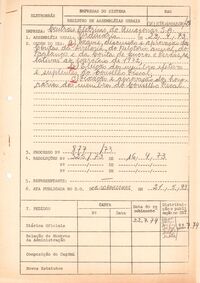 ELETROBRÁS
EMPRESAS DO SISTEMA
REGISTRO DE ASSEMBLÉIAS GERAIS
Centrais Elétricas do Amazonas S.A.
1. ASSEMBLÉIA GERAL Ordinária 23.4.73
2. ORDEM DO DIA: a) exame, discussão e aprovação das
Contas da Diretoria, do Relatório anual, do
balanço e da Conta de Lucros e Perdas, re-
lativas ao exercício de 1972;
b) Eleição dos membros efetivos
e suplentes do Conselho Fiscal;
c) Fixação e aprovação dos ho-
norários dos membros do Conselho Fiscal.
3. PROCESSO Nº 877/73
4. RESOLUÇÕES Nº 16.4.73
5. REPRESENTANTE:
6. ATA PUBLICADA NO D.O.
7. PEDIDOS
CARTA
Número
Data
Data do re
cebimento
Diários Oficiais
22.7.74
Relação de Membros
da Administração
Composição do Capital
Novos Estatutos